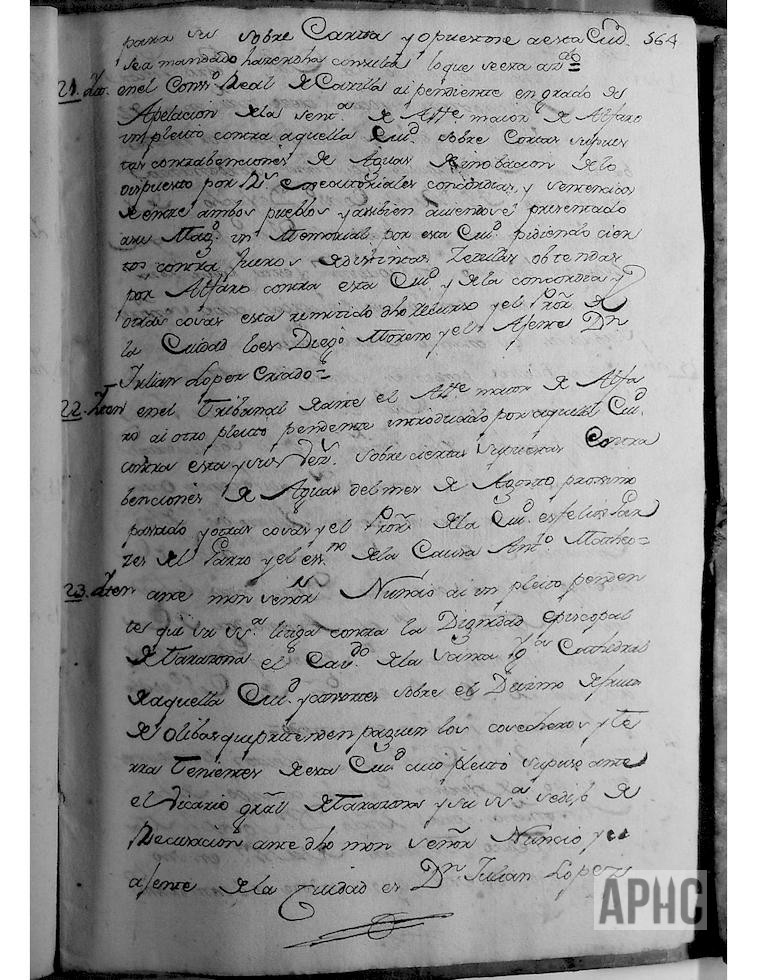 para su sobre Carta y oponerme a esta Ciud. 364
sea mandado hacer dha consulta lo que se exa
21. Itt. en el Conss.º Real de Castilla ai pendiente en grado de
Apelacion de la Sent.ª de Alld.e maior de Alfaro
un pleito contra aquella Ciu.d sobre Ciertas supues
tas contrabenciones de Aguas de inobacion de lo
dispuesto por R.s executoriales concordias, y sentencias
de entre ambos pueblos y assi bien auiendose presentado
a su Mag.d un Memorial por esta Ciu.d pidiendo cier
tos contra fueros de distintas Zedulas obtenidas
por Alfaro contra esta Ciu.d y de la concordia y
otras cosas esta remitido dho recurso y el Pror. de
la Ciudad lo es Diego Moreno y el Ajente Dn.
Julian Lopez Criado=
22. Itten en el Tribunal de ante el Alld.e maior de Alfa
ro ai otro pleito pendente introducido por aquella Ciu.
contra esta y sus Vez.s sobre ciertas supuestas Contra
benciones de Aguas del mes de Agosto proximo
pasado y otras cosas y el Pror. de la Ciu.d es felix Pan
zes del Parzo y el ess.no de la Causa Ant.º Matheo=
23. Itten ante mon señor Nuncio ai un pleito penden
te que su SS.ª litiga contra la Dignidad Episcopal
de Tarazona el Cau.do de la Santa Ig.ª Cathedral
de aquella Ciu.d y consortes sobre el Dezimo de fruto
de Olibas que pretenden paguen los cosecheros y te
rra tenientes de esta Ciu.d cuio pleito supuse ante
el Vicario gral de Tarazona y su SS.ª sedujo de
Recusacion ante dho mon señor Nuncio y el
ajente de la Ciudad es Dn Julian Lopez
APHC